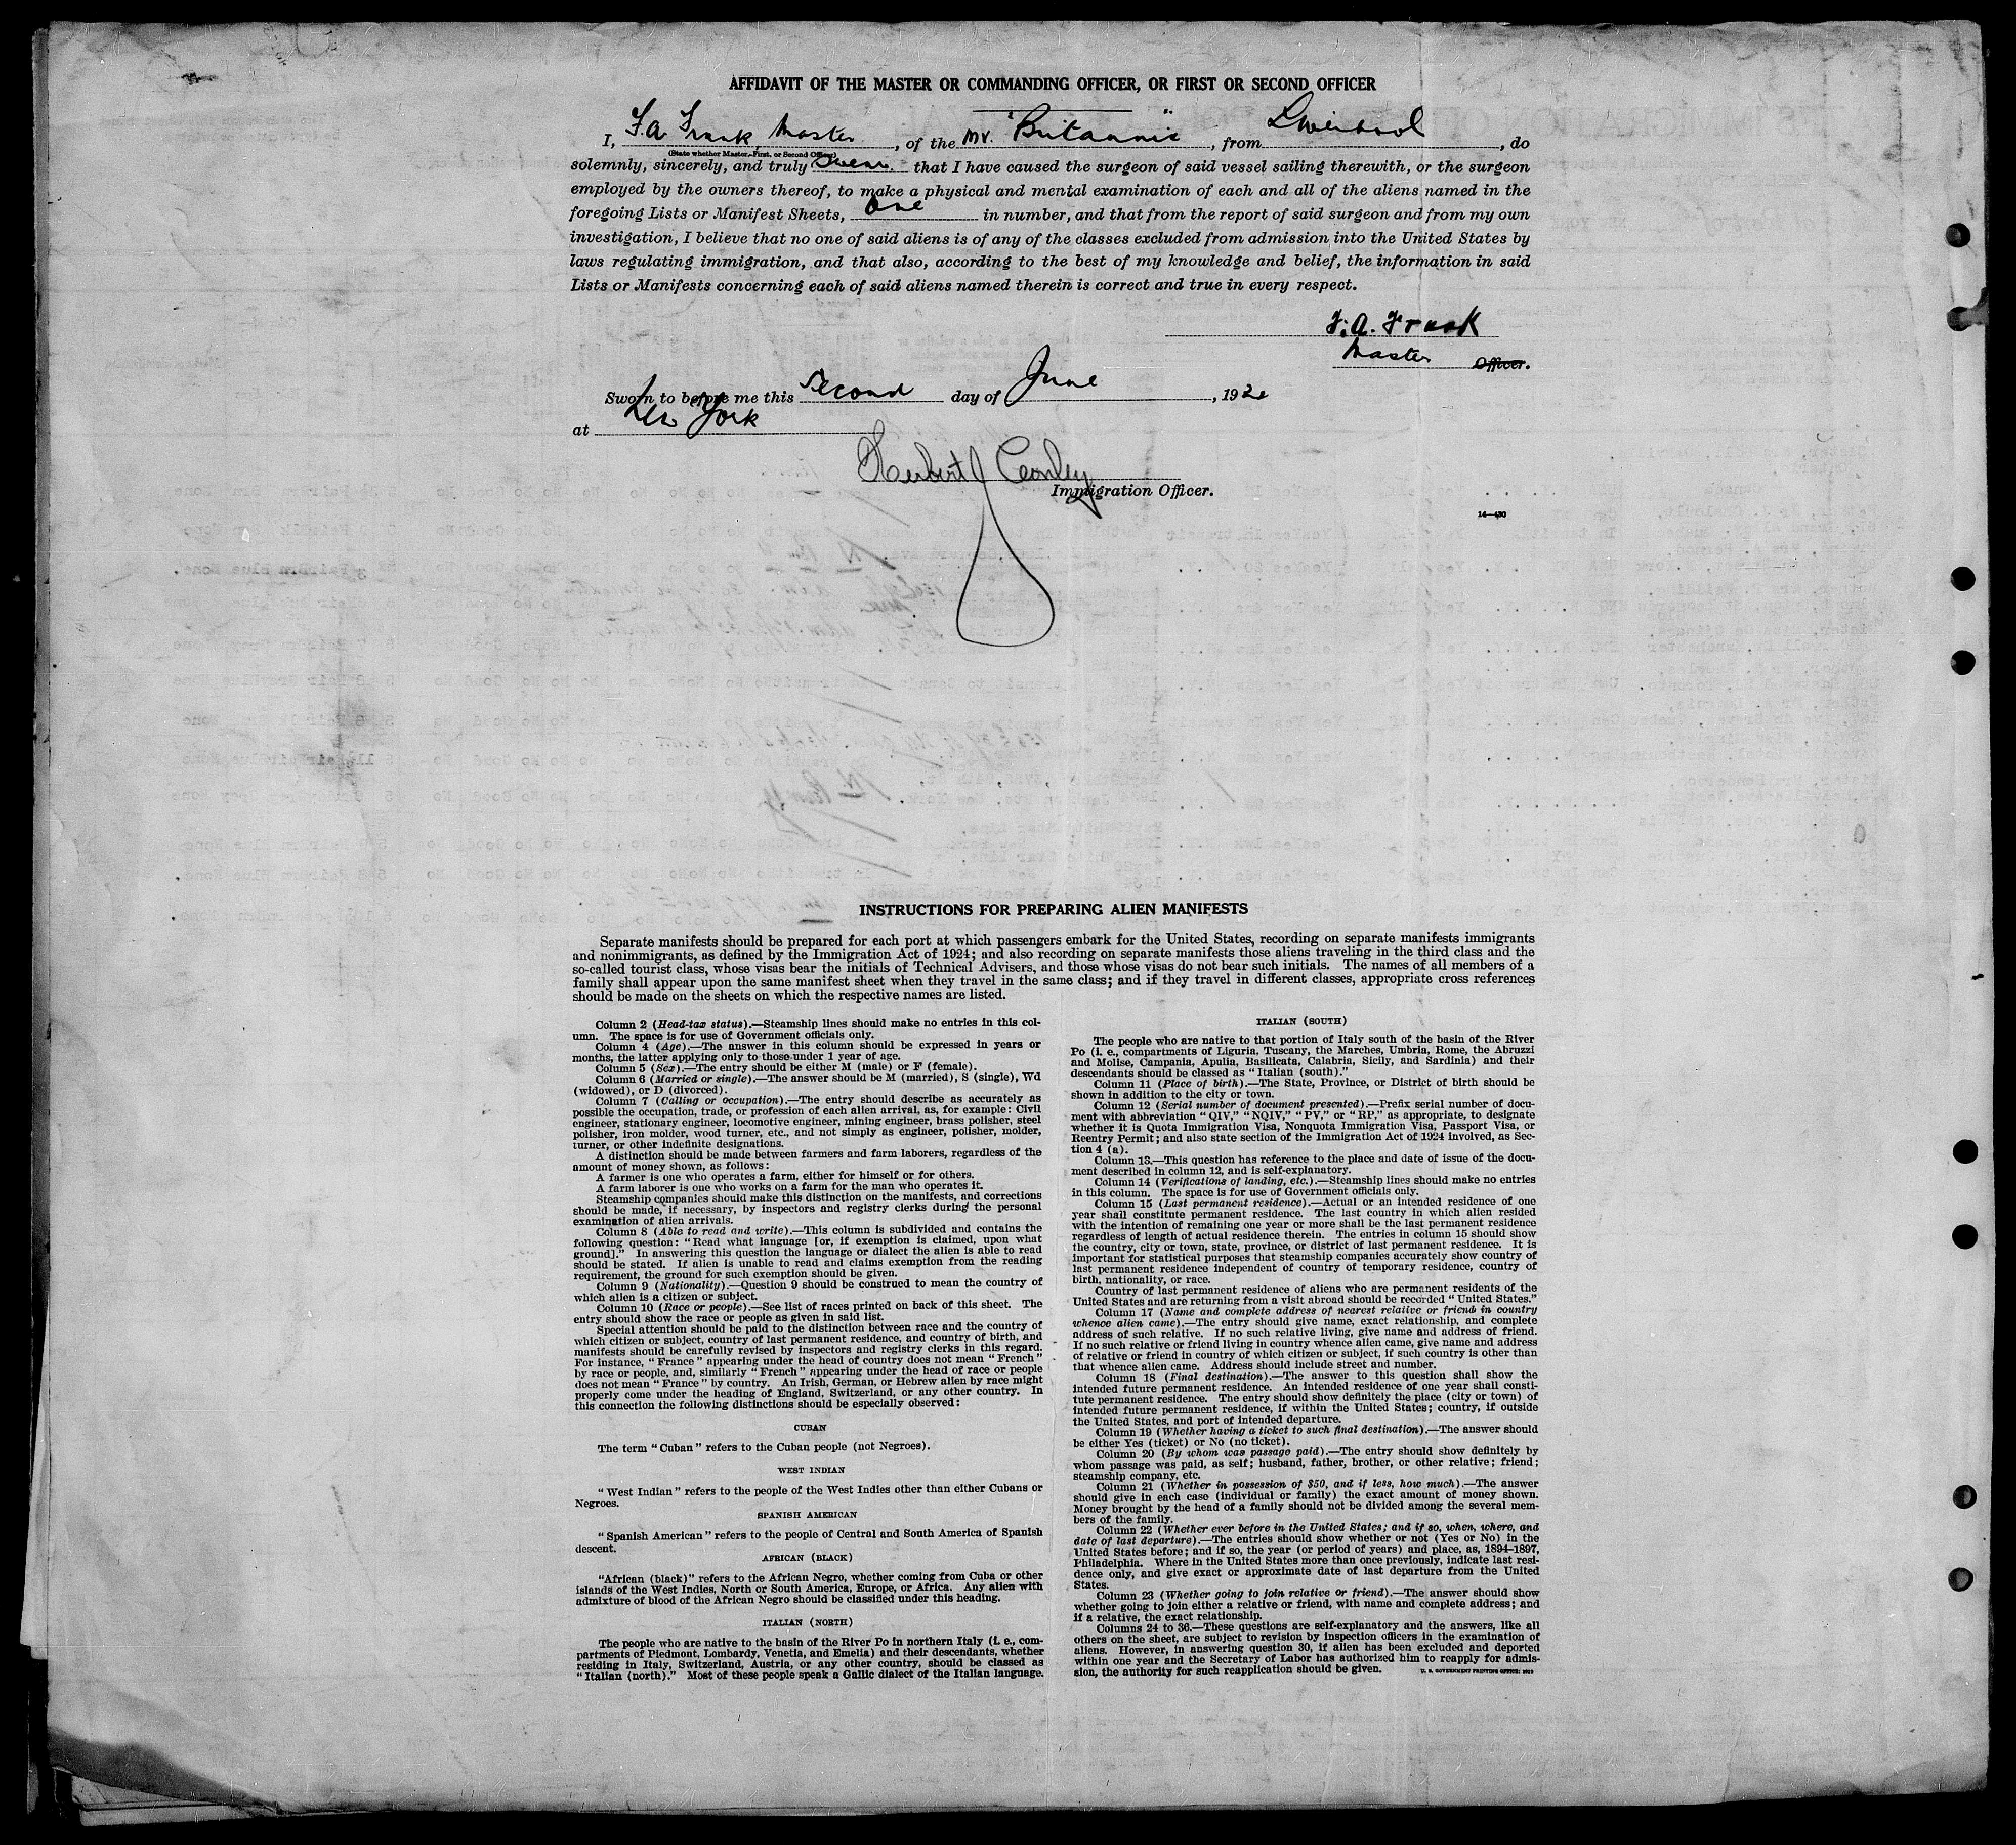 AFFIDAVIT OF THE MASTER OR COMMANDING OFFICER, OR FIRST OR SECOND OFFICER
I, F.A. Frank, Master, of the MV. "Britannic", from Liverpool, do
(State whether Master, First, or Second Officer)
solemnly, sincerely, and truly swear that I have caused the surgeon of said vessel sailing therewith, or the surgeon
employed by the owners thereof, to make a physical and mental examination of each and all of the aliens named in the
foregoing Lists or Manifest Sheets, One in number, and that from the report of said surgeon and from my own
investigation, I believe that no one of said aliens is of any of the classes excluded from admission into the United States by
laws regulating immigration, and that also, according to the best of my knowledge and belief, the information in said
Lists or Manifests concerning each of said aliens named therein is correct and true in every respect.
F.A. Frank
Master Officer.
Sworn to before me this Second day of June, 192
at New York
Herbert J
Immigration Officer.
14—430
INSTRUCTIONS FOR PREPARING ALIEN MANIFESTS
Separate manifests should be prepared for each port at which passengers embark for the United States, recording on separate manifests immigrants
and nonimmigrants, as defined by the Immigration Act of 1924; and also recording on separate manifests those aliens traveling in the third class and the
so-called tourist class, whose visas bear the initials of Technical Advisers, and those whose visas do not bear such initials. The names of all members of a
family shall appear upon the same manifest sheet when they travel in the same class; and if they travel in different classes, appropriate cross references
should be made on the sheets on which the respective names are listed.
Column 2 (Head-tax status).—Steamship lines should make no entries in this col-
umn. The space is for use of Government officials only.
Column 4 (Age).—The answer in this column should be expressed in years or
months, the latter applying only to those under 1 year of age.
Column 5 (Sex).—The entry should be either M (male) or F (female).
Column 6 (Married or single).—The answer should be M (married), S (single), Wd
(widowed), or D (divorced).
Column 7 (Calling or occupation).—The entry should describe as accurately as
possible the occupation, trade, or profession of each alien arrival, as, for example: Civil
engineer, stationary engineer, locomotive engineer, mining engineer, brass polisher, steel
polisher, iron molder, wood turner, etc., and not simply as engineer, polisher, molder,
turner, or other indefinite designations.
A distinction should be made between farmers and farm laborers, regardless of the
amount of money shown, as follows:
A farmer is one who operates a farm, either for himself or for others.
A farm laborer is one who works on a farm for the man who operates it.
Steamship companies should make this distinction on the manifests, and corrections
should be made, if necessary, by inspectors and registry clerks during the personal
examination of alien arrivals.
Column 8 (Able to read and write).—This column is subdivided and contains the
following question: "Read what language [or, if exemption is claimed, upon what
ground]." In answering this question the language or dialect the alien is able to read
should be stated. If alien is unable to read and claims exemption from the reading
requirement, the ground for such exemption should be given.
Column 9 (Nationality).—Question 9 should be construed to mean the country of
which alien is a citizen or subject.
Column 10 (Race or people).—See list of races printed on back of this sheet. The
entry should show the race or people as given in said list.
Special attention should be paid to the distinction between race and the country of
which citizen or subject, country of last permanent residence, and country of birth, and
manifests should be carefully revised by inspectors and registry clerks in this regard.
For instance, "France" appearing under the head of country does not mean "French"
by race or people, and, similarly "French" appearing under the head of race or people
does not mean "France" by country. An Irish, German, or Hebrew alien by race might
properly come under the heading of England, Switzerland, or any other country. In
this connection the following distinctions should be especially observed:
CUBAN
The term "Cuban" refers to the Cuban people (not Negroes).
WEST INDIAN
"West Indian" refers to the people of the West Indies other than either Cubans or
Negroes.
SPANISH AMERICAN
"Spanish American" refers to the people of Central and South America of Spanish
descent.
AFRICAN (BLACK)
"African (black)" refers to the African Negro, whether coming from Cuba or other
islands of the West Indies, North or South America, Europe, or Africa. Any alien with
admixture of blood of the African Negro should be classified under this heading.
ITALIAN (NORTH)
The people who are native to the basin of the River Po in northern Italy (i. e., com-
partments of Piedmont, Lombardy, Venetia, and Emelia) and their descendants, whether
residing in Italy, Switzerland, Austria, or any other country, should be classed as
"Italian (north)." Most of these people speak a Gallic dialect of the Italian language.
ITALIAN (SOUTH)
The people who are native to that portion of Italy south of the basin of the River
Po (i. e., compartments of Liguria, Tuscany, the Marches, Umbria, Rome, the Abruzzi
and Molise, Campania, Apulia, Basilicata, Calabria, Sicily, and Sardinia) and their
descendants should be classed as "Italian (south)."
Column 11 (Place of birth).—The State, Province, or District of birth should be
shown in addition to the city or town.
Column 12 (Serial number of document presented).—Prefix serial number of docu-
ment with abbreviation "QIV," "NQIV," "PV," or "RP," as appropriate, to designate
whether it is Quota Immigration Visa, Nonquota Immigration Visa, Passport Visa, or
Reentry Permit; and also state section of the Immigration Act of 1924 involved, as Sec-
tion 4 (a).
Column 13.—This question has reference to the place and date of issue of the docu-
ment described in column 12, and is self-explanatory.
Column 14 (Verifications of landing, etc.).—Steamship lines should make no entries
in this column. The space is for use of Government officials only.
Column 15 (Last permanent residence).—Actual or an intended residence of one
year shall constitute permanent residence. The last country in which alien resided
with the intention of remaining one year or more shall be the last permanent residence
regardless of length of actual residence therein. The entries in column 15 should show
the country, city or town, state, province, or district of last permanent residence. It is
important for statistical purposes that steamship companies accurately show country of
last permanent residence independent of country of temporary residence, country of
birth, nationality, or race.
Country of last permanent residence of aliens who are permanent residents of the
United States and are returning from a visit abroad should be recorded "United States."
Column 17 (Name and complete address of nearest relative or friend in country
whence alien came).—The entry should give name, exact relationship, and complete
address of such relative. If no such relative living, give name and address of friend.
If no such relative or friend living in country whence alien came, give name and address
of relative or friend in country of which citizen or subject, if such country is other than
that whence alien came. Address should include street and number.
Column 18 (Final destination).—The answer to this question shall show the
intended future permanent residence. An intended residence of one year shall consti-
tute permanent residence. The entry should show definitely the place (city or town) of
intended future permanent residence, if within the United States; country, if outside
the United States, and port of intended departure.
Column 19 (Whether having a ticket to such final destination).—The answer should
be either Yes (ticket) or No (no ticket).
Column 20 (By whom was passage paid).—The entry should show definitely by
whom passage was paid, as self; husband, father, brother, or other relative; friend;
steamship company, etc.
Column 21 (Whether in possession of $50, and if less, how much).—The answer
should give in each case (individual or family) the exact amount of money shown.
Money brought by the head of a family should not be divided among the several mem-
bers of the family.
Column 22 (Whether ever before in the United States; and if so, when, where, and
date of last departure).—The entries should show whether or not (Yes or No) in the
United States before; and if so, the year (or period of years) and place, as, 1894–1897,
Philadelphia. Where in the United States more than once previously, indicate last resi-
dence only, and give exact or approximate date of last departure from the United
States.
Column 23 (Whether going to join relative or friend).—The answer should show
whether going to join either a relative or friend, with name and complete address; and
if a relative, the exact relationship.
Columns 24 to 36.—These questions are self-explanatory and the answers, like all
others on the sheet, are subject to revision by inspection officers in the examination of
aliens. However, in answering question 30, if alien has been excluded and deported
within one year and the Secretary of Labor has authorized him to reapply for admis-
sion, the authority for such reapplication should be given.
U. S. GOVERNMENT PRINTING OFFICE: